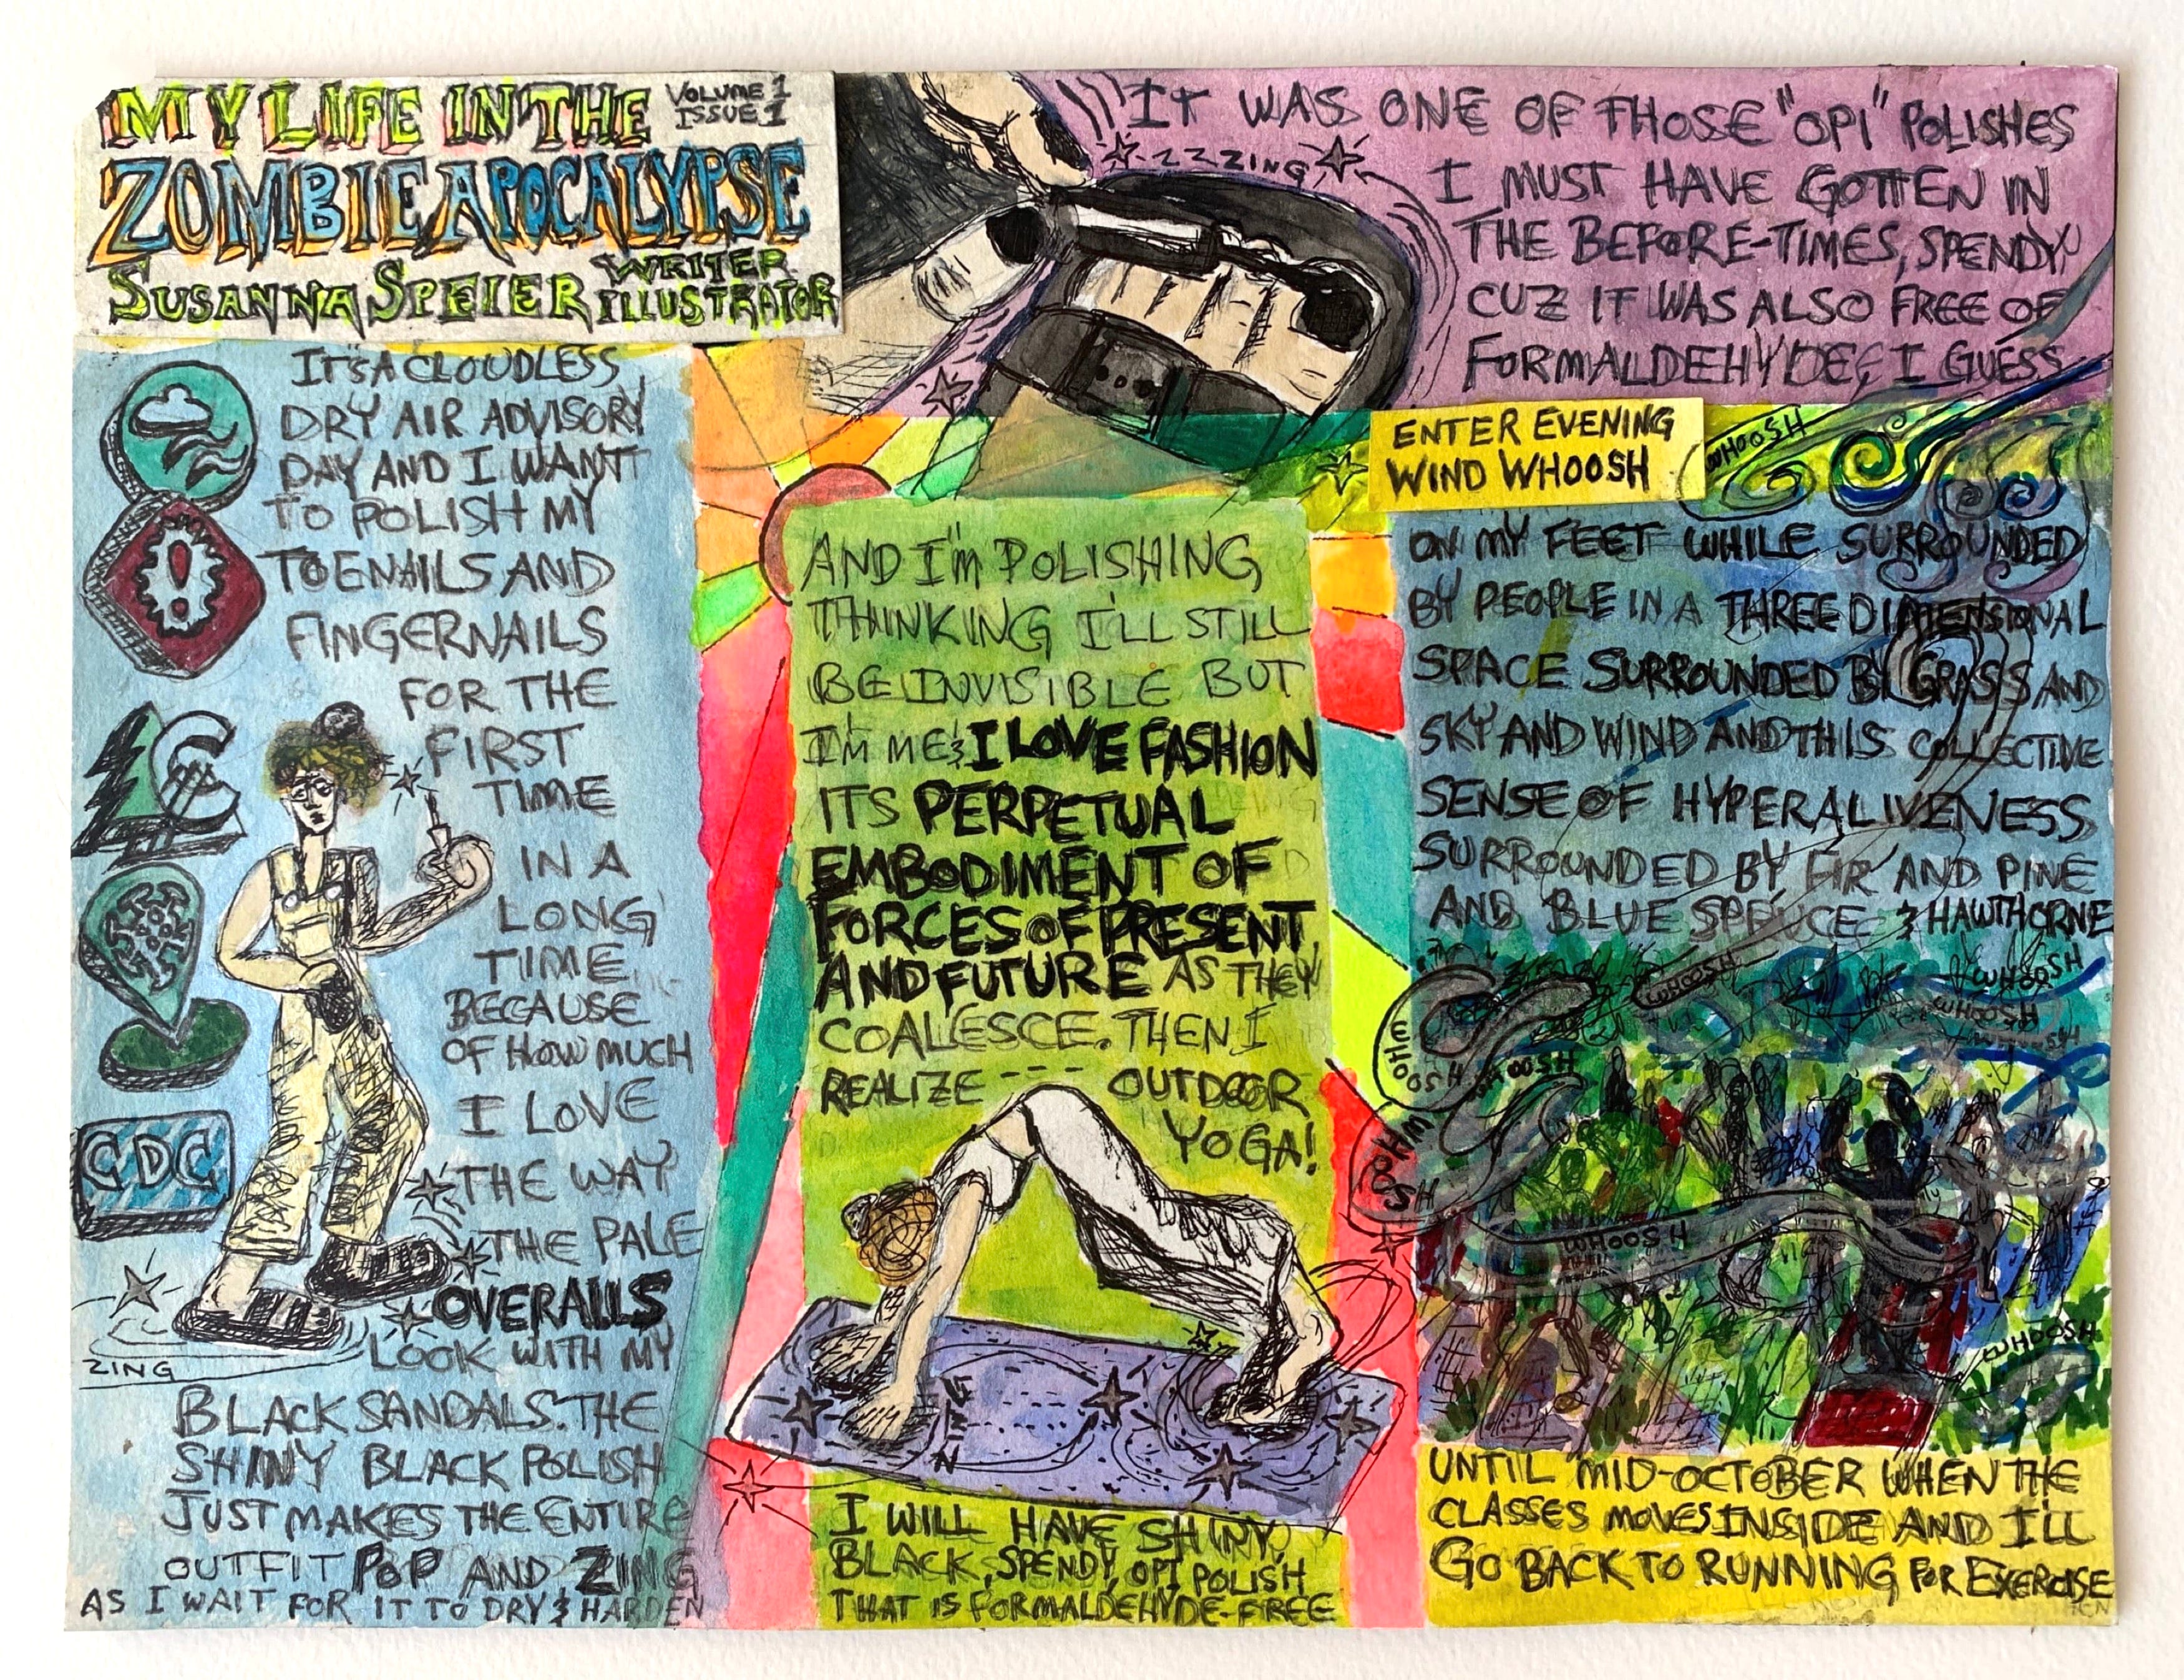 MY LIFE IN THE
VOLUME 1
ISSUE 1
ZOMBIE APOCALYPSE
SUSANNA SPEIER
WRITER
ILLUSTRATOR
IT'S A CLOUDLESS
DRY AIR ADVISORY
DAY AND I WANT
TO POLISH MY
TOENAILS AND
FINGERNAILS
FOR THE
FIRST
TIME
IN A
LONG
TIME
BECAUSE
OF HOW MUCH
I LOVE
THE WAY
THE PALE
OVERALLS
LOOK WITH MY
BLACK SANDALS. THE
SHINY BLACK POLISH
JUST MAKES THE ENTIRE
OUTFIT POP AND ZING
AS I WAIT FOR IT TO DRY & HARDEN
!
C
CDC
ZING
IT WAS ONE OF THOSE "OPI" POLISHES
I MUST HAVE GOTTEN IN
THE BEFORE-TIMES, SPENDY
CUZ IT WAS ALSO FREE OF
FORMALDEHYDE, I GUESS
ZZZZING
AND I'M POLISHING
THINKING I'LL STILL
BE INVISIBLE BUT
I'M ME & I LOVE FASHION
ITS PERPETUAL
EMBODIMENT OF
FORCES OF PRESENT
AND FUTURE AS THEY
COALESCE. THEN I
REALIZE --- OUTDOOR
YOGA!
ZING
I WILL HAVE SHINY,
BLACK, SPENDY, OPI POLISH
THAT IS FORMALDEHYDE-FREE
ENTER EVENING
WIND WHOOSH
WHOOSH
ON MY FEET WHILE SURROUNDED
BY PEOPLE IN A THREE DIMENSIONAL
SPACE SURROUNDED BY GRASS AND
SKY AND WIND AND THIS COLLECTIVE
SENSE OF HYPERALIVENESS
SURROUNDED BY FIR AND PINE
AND BLUE SPRUCE & HAWTHORNE
WHOOSH
WHOOSH
WHOOSH
WHOOSH
WHOOSH
WHOOSH
UNTIL MID-OCTOBER WHEN THE
CLASSES MOVES INSIDE AND I'LL
GO BACK TO RUNNING FOR EXERCISE